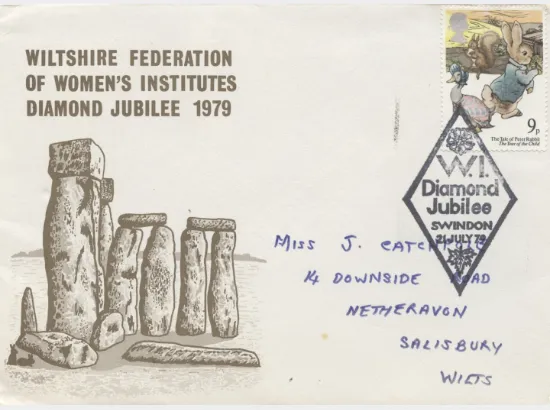 WILTSHIRE FEDERATION
OF WOMEN'S INSTITUTES
DIAMOND JUBILEE 1979
9p
The Tale of Peter Rabbit
The Year of the Child
W.I.
Diamond
Jubilee
SWINDON
21 JULY 79
MISS J. 
14 DOWNSIDE ROAD
NETHERAVON
SALISBURY
WILTS